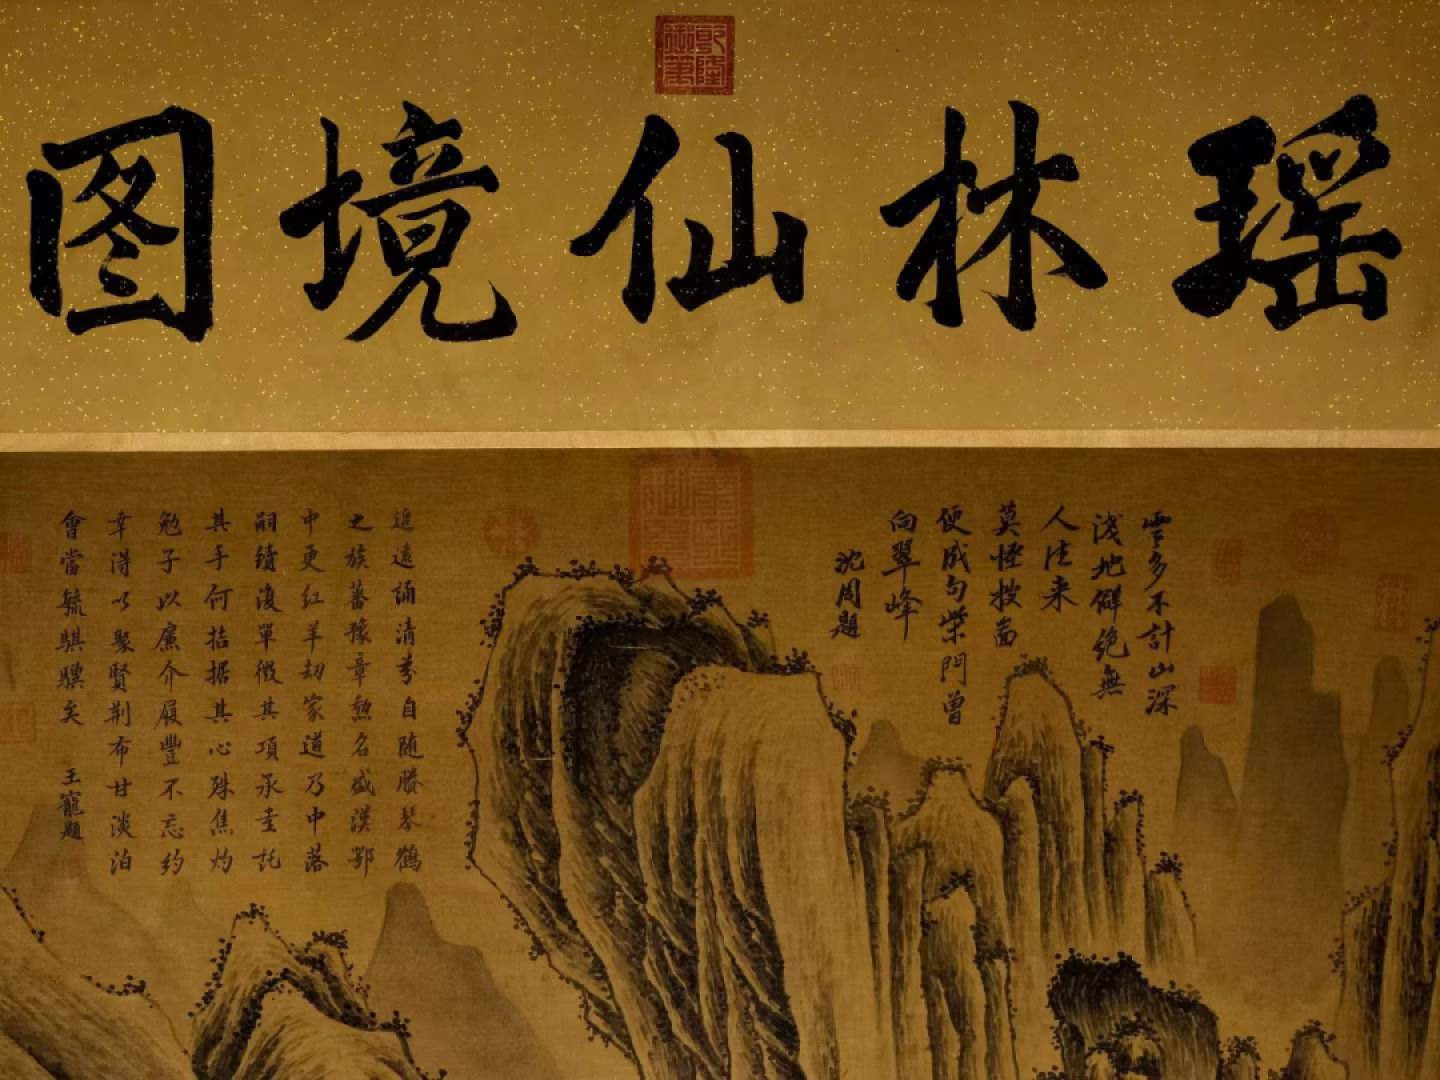 瑶林仙境图
雲多不計山深
淺地僻絶無
人往来
莫怪披啚
便成句柴門曽
向翠峰
沈周題
追遠誦清芬自随勝琴鶴
之族蕃豫章勲名盛漢鄂
中更紅羊劫家道乃中落
嗣續復單微其項承重託
其手何拮据其心殊焦灼
勉子以廉介履豐不忘約
幸得以聚賢荆布甘淡泊
會當毓騏驥矣
王寵題